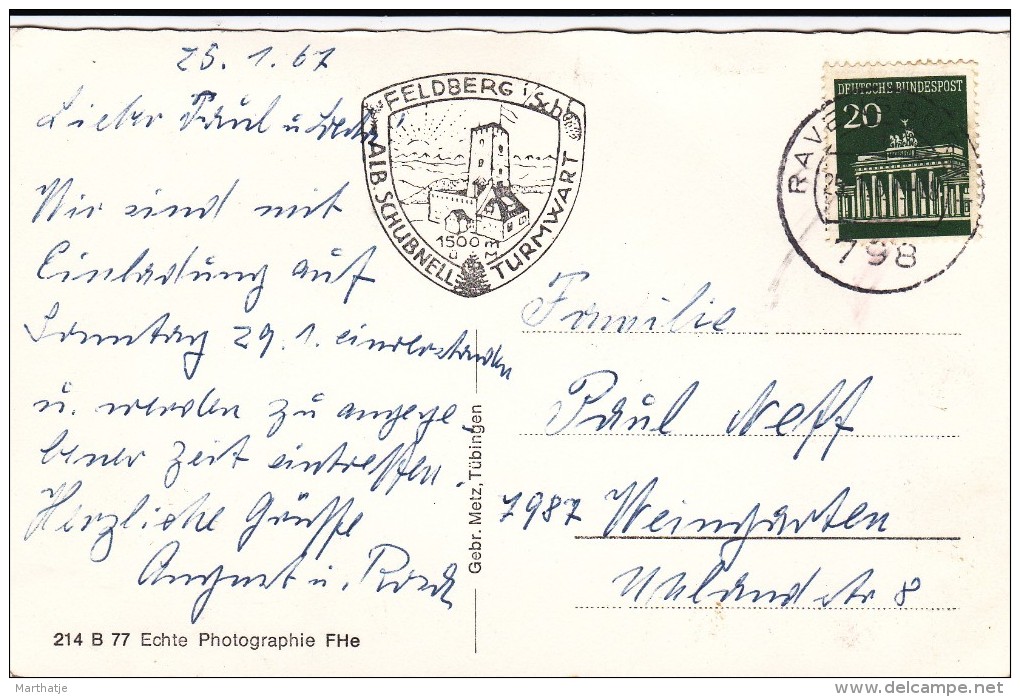 25. 1. 67
Lieber Paul u.
Wir sind mit
Einladung auf
Sonntag 29. 1. einverstanden
u. werden zu angege-
bener Zeit eintreffen.
Herzliche Grüsse
August u.
214 B 77 Echte Photographie FHe
FELDBERG i/Sch
ALB. SCHUBNELL TURMWART
1500
ü M
Gebr. Metz, Tübingen
DEUTSCHE BUNDESPOST
20
RAVE
798
Familie
Paul Neff
7987 Weingarten
Uhlandstr 8
Marthatje
delcampe.net